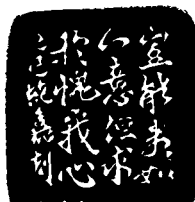 豈能尽如
人意但求
无愧我心